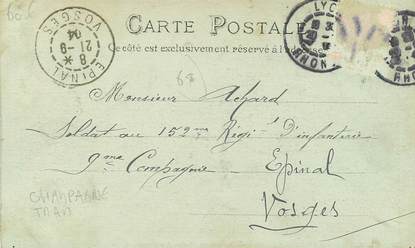 CARTE POSTALE
Ce côté est exclusivement réservé à l'adresse
EPINAL
VOSGES
8
21-9
04
LYO
RHON
RHO
68
Monsieur Achard
Soldat au 152me Régt D'infanterie
9me Compagnie Epinal
Vosges
CHAMPAGNE